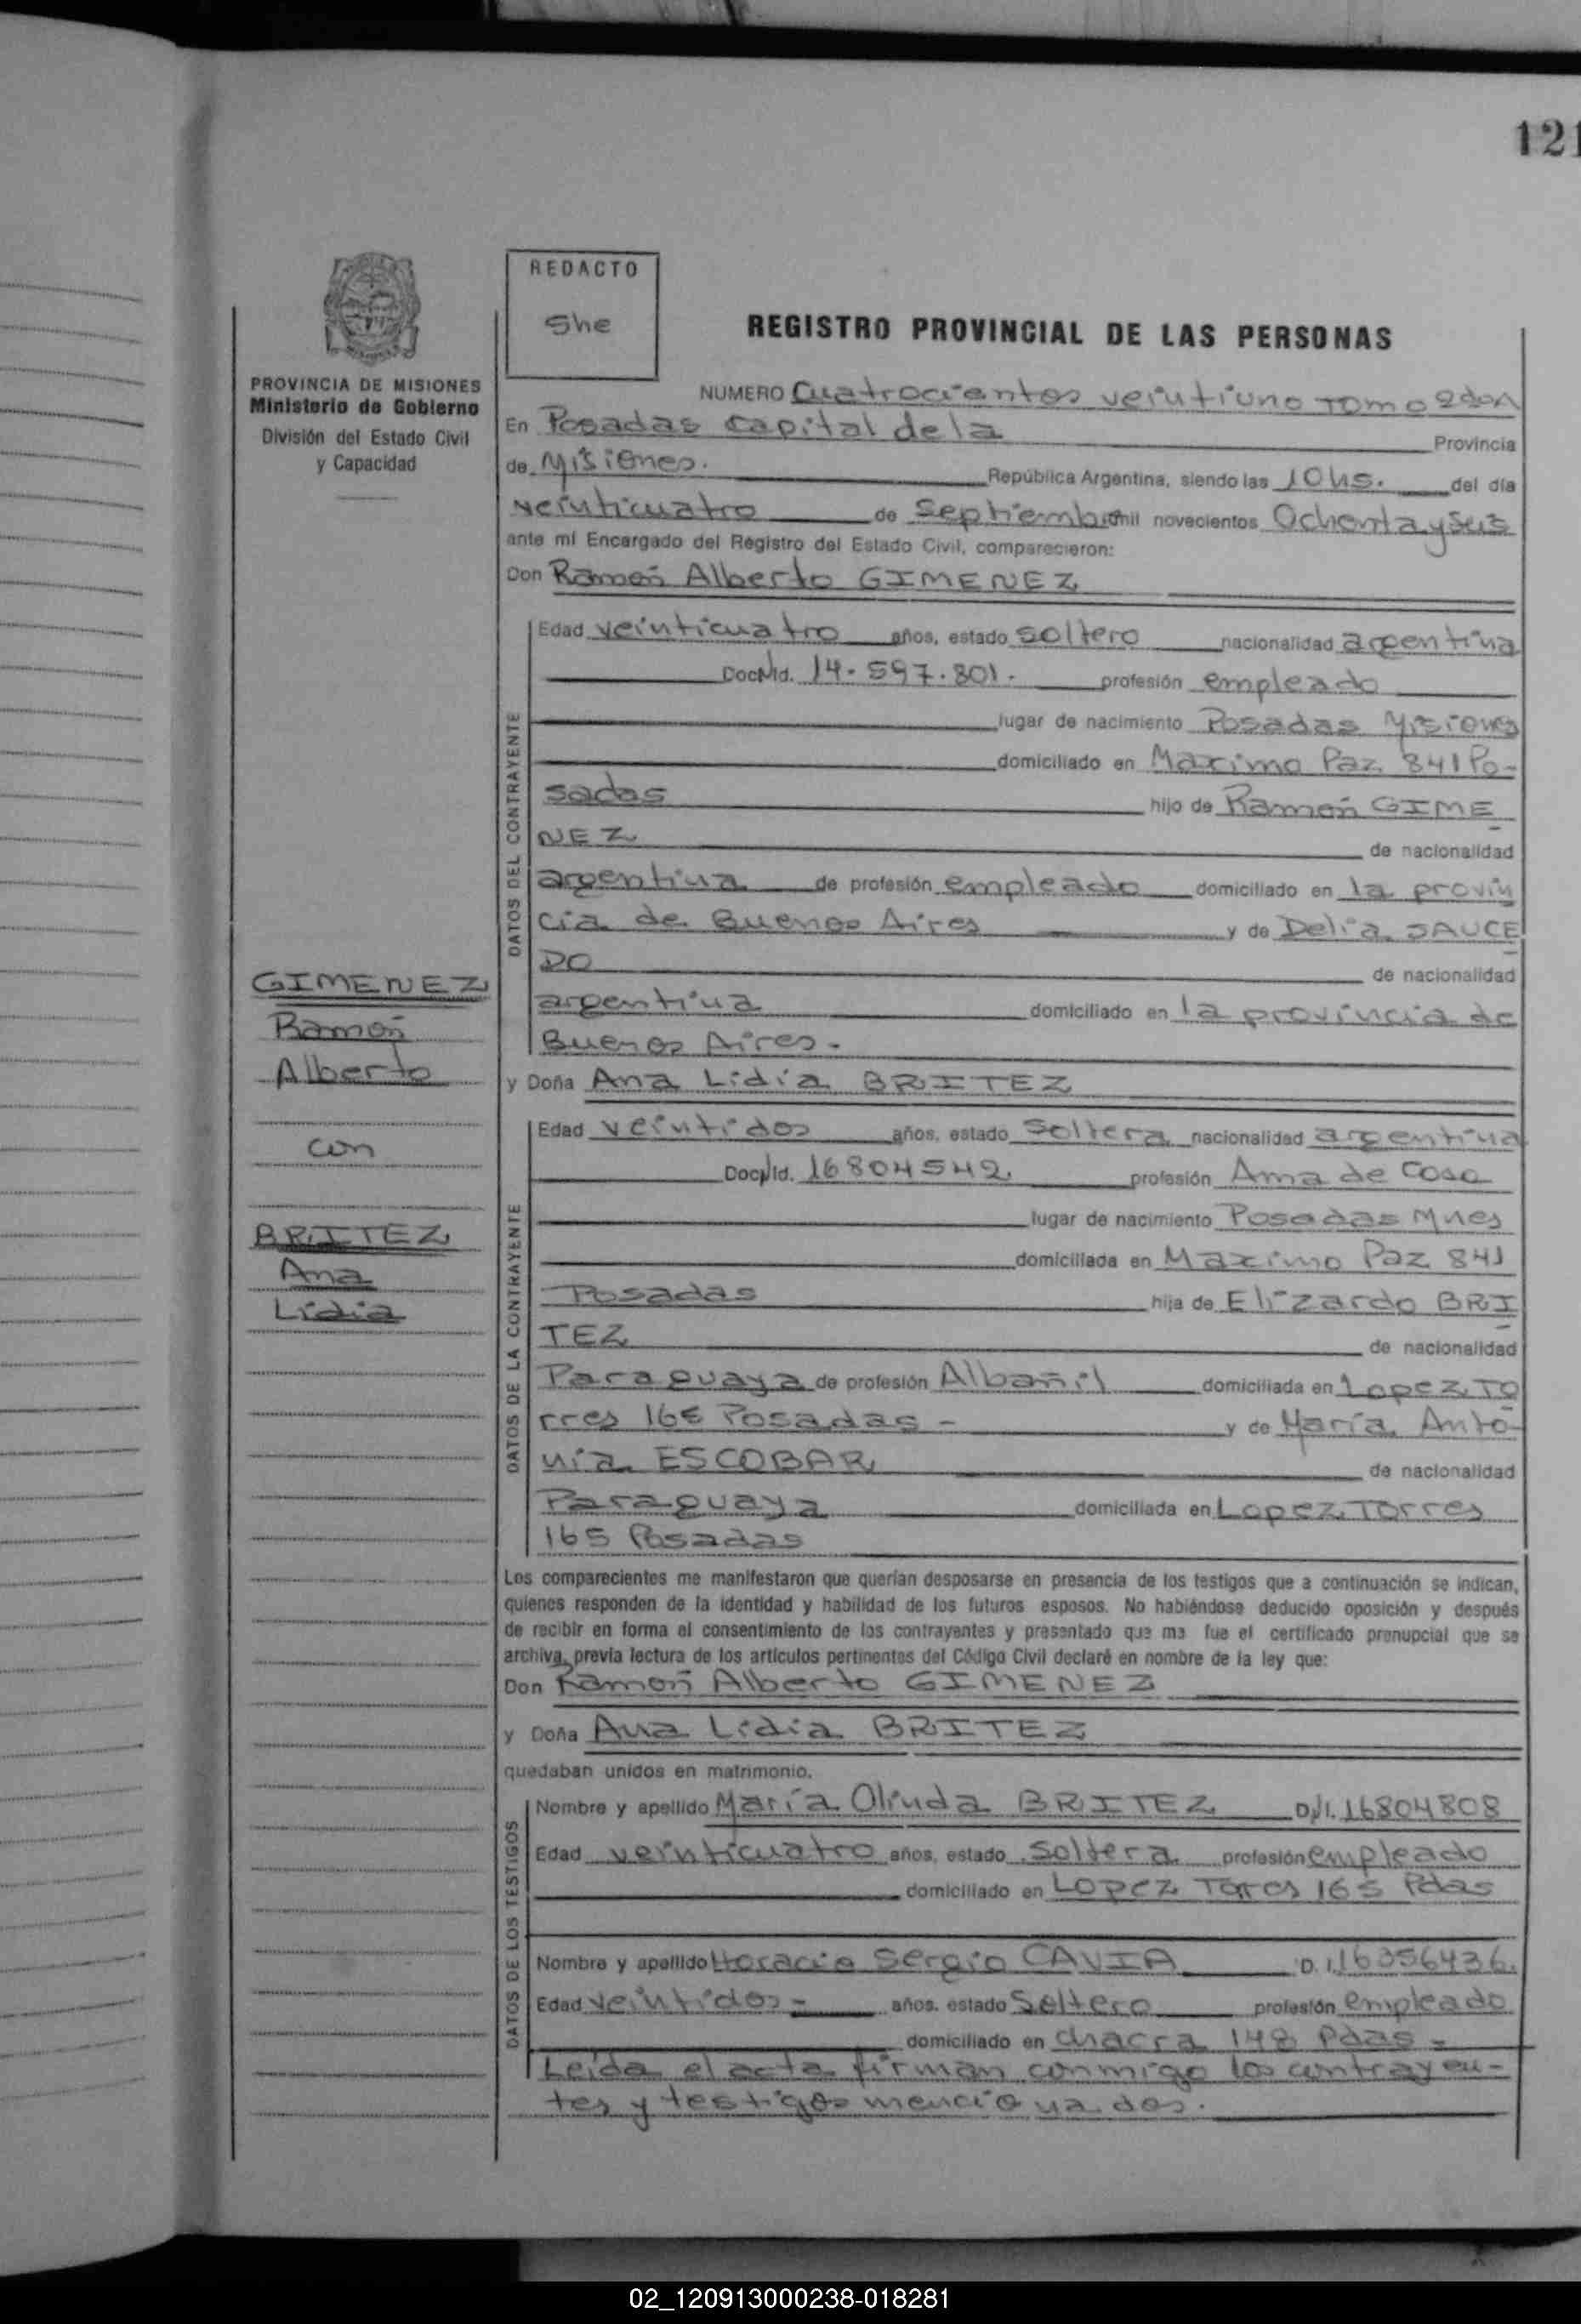 121
REDACTO
She
REGISTRO PROVINCIAL DE LAS PERSONAS
PROVINCIA DE MISIONES
Ministerio de Gobierno
División del Estado Civil
y Capacidad
NUMERO Cuatrocientos veintiuno TOMO 2do A
En Posadas capital de la Provincia
de Misiones. República Argentina, siendo las 10 Hs. del día
veinticuatro de Septiemb mil novecientos Ochenta y Seis
ante mí Encargado del Registro del Estado Civil, comparecieron:
Don Ramón Alberto GIMENEZ
DATOS DEL CONTRAYENTE
Edad veinticuatro años, estado soltero nacionalidad argentina
Doc Nid. 14.597.801. profesión empleado
lugar de nacimiento Posadas Misiones
domiciliado en Maximo Paz 841 Po-
sadas hijo de Ramón GIME
NEZ de nacionalidad
argentina de profesión empleado domiciliado en la provin
cia de Buenos Aires y de Delia SAUCE
DO de nacionalidad
argentina domiciliado en la provincia de
Buenos Aires.
GIMENEZ
Ramón
Alberto
con
BRITEZ
Ana
Lidia
y Doña Ana Lidia BRITEZ
DATOS DE LA CONTRAYENTE
Edad veintidos años, estado Soltera nacionalidad argentina
Doc Nid. 16804542. profesión Ama de Casa
lugar de nacimiento Posadas Mnes
domiciliada en Maximo Paz 841
Posadas hija de Elizardo BRI
TEZ de nacionalidad
Paraguaya de profesión Albañil domiciliada en Lopez To
rres 165 Posadas - y de María Anto-
nia ESCOBAR de nacionalidad
Paraguaya domiciliada en Lopez Torres
165 Posadas
Los comparecientes me manifestaron que querían desposarse en presencia de los testigos que a continuación se indican,
quienes responden de la identidad y habilidad de los futuros esposos. No habiéndose deducido oposición y después
de recibir en forma el consentimiento de los contrayentes y presentado que me fue el certificado prenupcial que se
archiva, previa lectura de los artículos pertinentes del Código Civil declaré en nombre de la ley que:
Don Ramón Alberto GIMENEZ
y Doña Ana Lidia BRITEZ
quedaban unidos en matrimonio.
DATOS DE LOS TESTIGOS
Nombre y apellido María Olinda BRITEZ D.I. 16804808
Edad veinticuatro años, estado Soltera profesión empleado
domiciliado en Lopez Torres 165 Pdas
Nombre y apellido Horacio Sergio CAVIA D.I. 16356436.
Edad veintidos - años, estado Soltero profesión empleado
domiciliado en chacra 148 Pdas -
Leida el acta firman conmigo los contrayen-
tes y testigos mencionados.
02_120913000238-018281